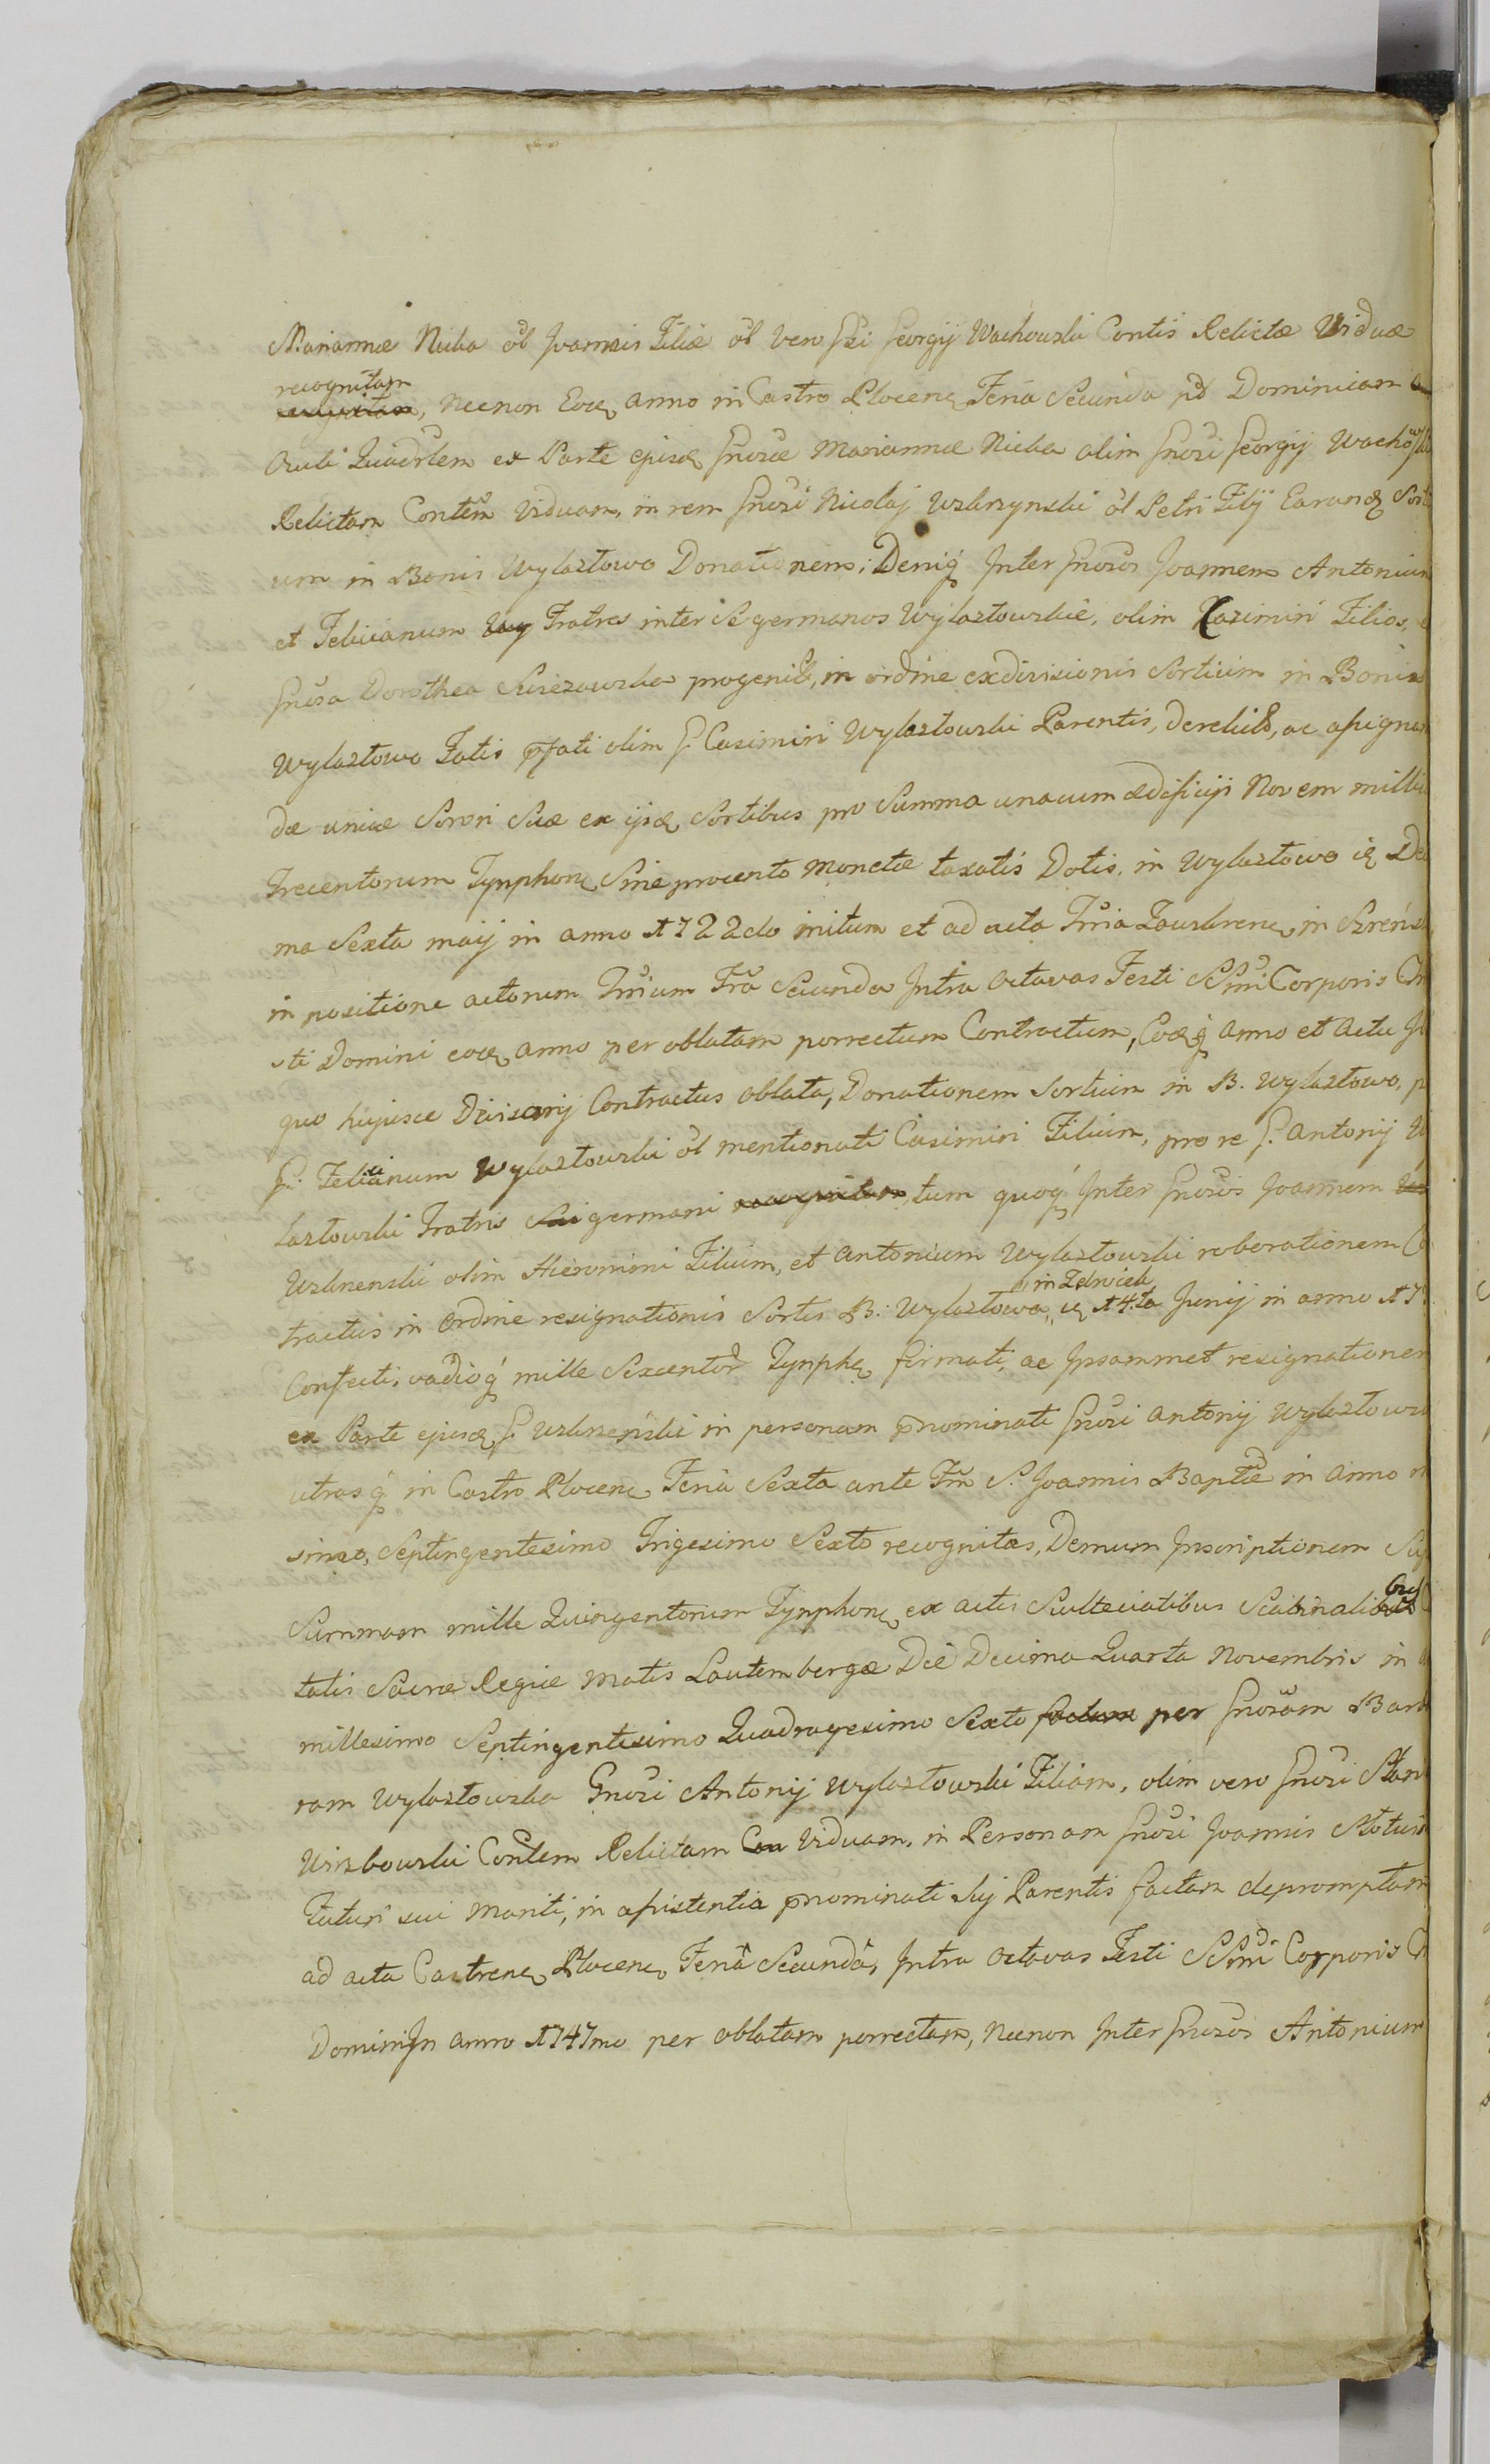 Mariannæ Nicka ol Joannis Filiæ ol vero Gsi Georgij Wachowski Contis Relictæ Viduæ
recognitam
recognitam, Necnon Eod. anno in Castro Plocen. Feria Secunda pd Dominicam
Oculi Quadrlem ex Parte ejusd. Gnosæ Mariannæ Nicka olim Gnosi Georgij Wachowski
Relictam Contem Viduam, in rem Gnosi Nicolaj Uzkrzynski ol Petri Filij Earund. Sorti
um in Bonis Wylaztowo Donationem; Deniq. Inter Gnosos Joannem Antonium
et Felicianum Wy Fratres inter Se germanos Wylaztowskie, olim Kazimiri Filios,
Gnosa Dorothea progenit, in ordine exdivisionis Sortium in Bonis
Wylaztowo Fatis pfati olim G. Casimiri Wylaztowski Parentis, derelict, ac assignan
dæ unicæ Sorori Suæ ex ijsd. Sortibus pro Summa unacum ædificijs Novem milliu
Trecentorum Tynphon. Sine procento monetæ taxatis Dotis, in Wylaztowo id. De
ma Sexta maij in anno 1722do initum et ad acta Trria Zawskren. in Szrensk
in positione actorum Trrium Fra Secunda Intra Octavas Festi SSmi Corporis Chri
sti Domini eod. anno per oblatam porrectum Contractum, Eod.q. anno et Actu
quo hujusce Divisorij Contractus oblata, Donationem Sortium in B. Wylaztowo, p
G. Felicianum Wylaztowski ol mentionati Casimiri Filium, pro re G. Antonij W
laztowski Fratris Sui germani recognitam, tum quoq. Inter Gnosos Joannem
Uzkrzenski olim Hieronimi Filium, et Antonium Wylaztowski roborationem Co
in Zdwiek
tractus in Ordine resignationis Sortis B. Wylaztowo, id. 14.ta Junij in anno 17
Confecti, vadioq. mille Sexcentor Tynph. firmati, ac Ipsammet resignationem
ex Parte ejusd. G. Uzkrzenski in personam pnominati Gnosi Antonij Wylaztows
utrasq. in Castro Plocen. Feria Sexta ante Fm S. Joannis Baptæ in Anno
simo, Septingentesimo Trigesimo Sexto recognitas, Demum Inscriptionem Sup
Summam mille Quingentorum Tynphon. ex actis Scultecialibus Scabinalibus Civi
tatis Sacræ Regiæ Matis Lautembergæ Die Decima Quarta Novembris in
millesimo Septingentesimo Quadragesimo Sexto factam per Gnosam Barb
ram Wylaztowska Gnosi Antonij Wylaztowski Filiam, olim vero Gnosi Stani
Wirzbowski Contem Relictam Con Viduam, in Personam Gnosi Joannis
Futuri sui Mariti, in assistentia pnominati Sui Parentis factam depromptam
ad acta Castren. Plocen. Feria Secunda, Intra Octavas Festi SSmi Corporis Ch
Domini In anno 1747mo per oblatam porrectam, Necnon Inter Gnosos Antonium